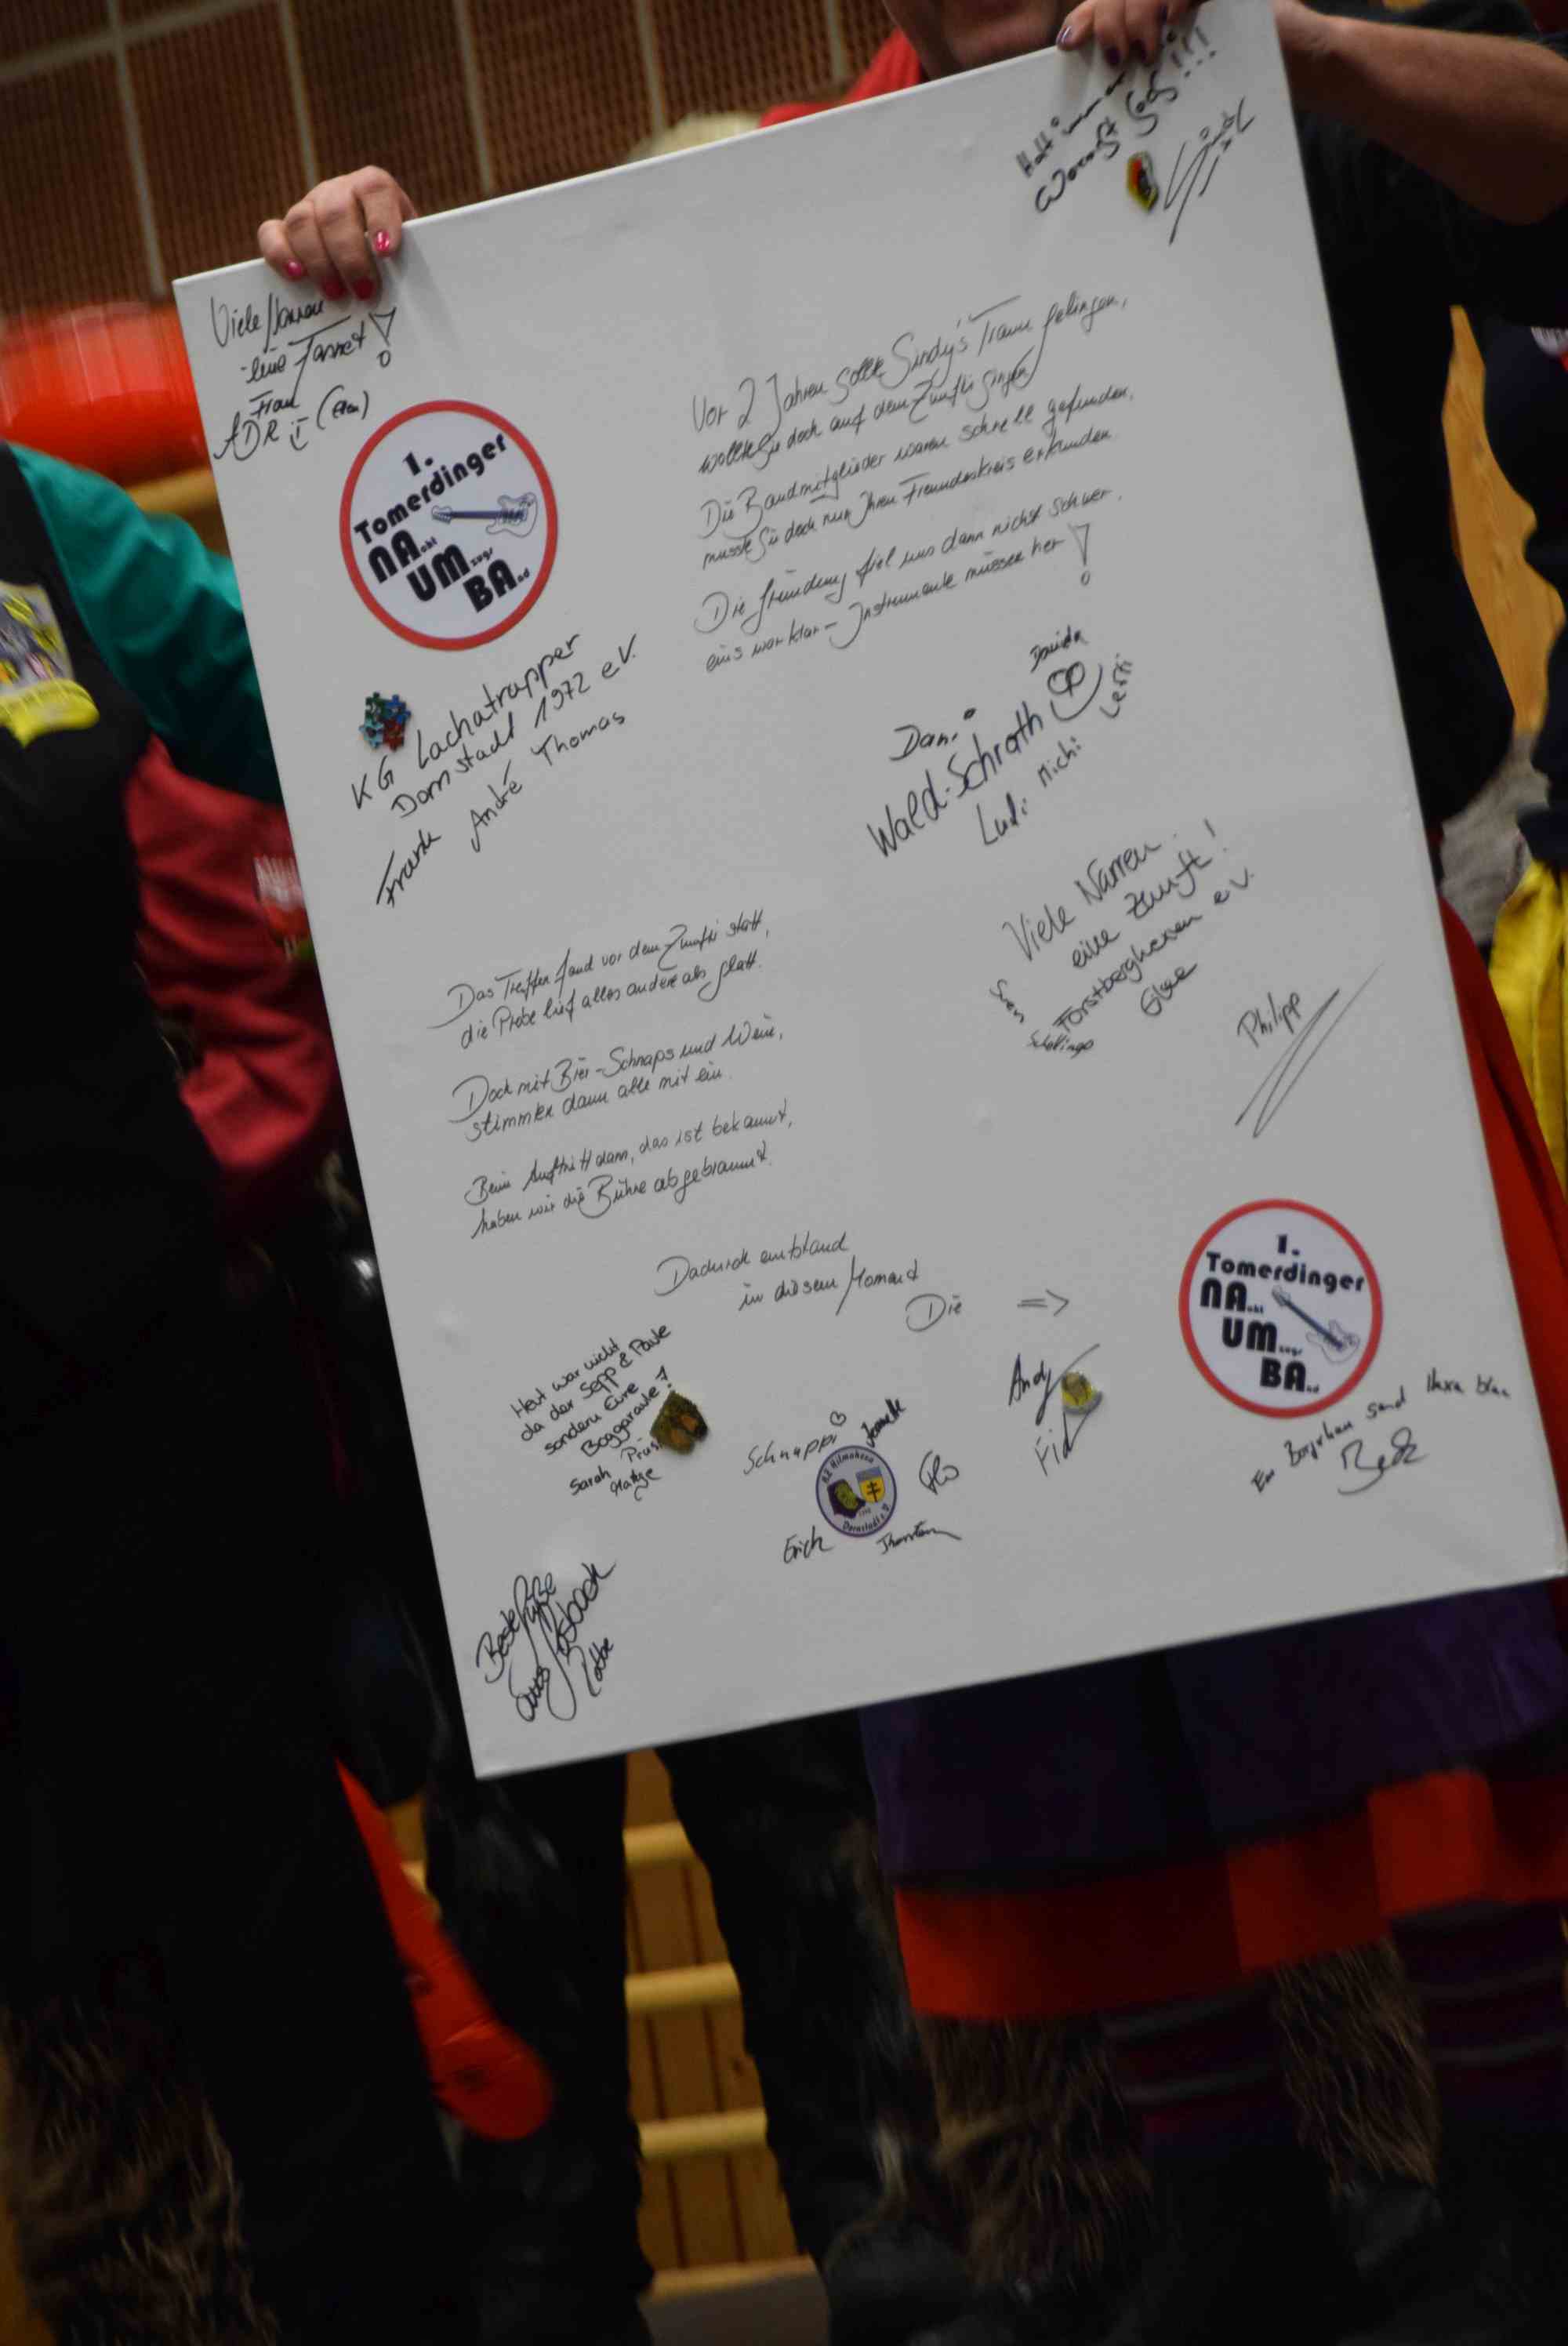 Viele Narren
eine Fasnet!
Frau
ADR
1.
Tomerdinger
NA...cht
UM...zugs
BA...nd
Vor 2 Jahren sollte Sindy's Traum gelingen,
wollte Sie doch auf dem Zunfti singen
Die Bandmitglieder waren schnell gefunden,
musste Sie doch nur Ihren Freundeskreis erkunden.
Die Gründung fiel uns dann nicht schwer,
eins war klar - Instrumente müssen her!
KG Lachatrapper
Dornstadt 1972 e.V.
Frank André Thomas
Dani
Wald-Schrath
Ludi Michi
Viele Narren
eine Zunft!
Forstberghexen e.V.
Sven
Philipp
Das Treffen fand vor dem Zunfti statt,
die Probe lief alles andere als glatt.
Doch mit Bier-Schnaps und Wein,
stimmten dann alle mit ein.
Beim Auftritt dann, das ist bekannt,
haben wir die Bühne abgebrannt.
Dadurch entstand
in diesem Moment
Die =>
1.
Tomerdinger
NA...cht
UM...zugs
BA...nd
Heut war nicht
da der Sepp & Paule
sondern Eure
Boggaraule!
Sarah
Schnappi
Flo
Erich
Thorsten
Hilmahexa
Dornstadt e.V.
Andy
Beste Grüße